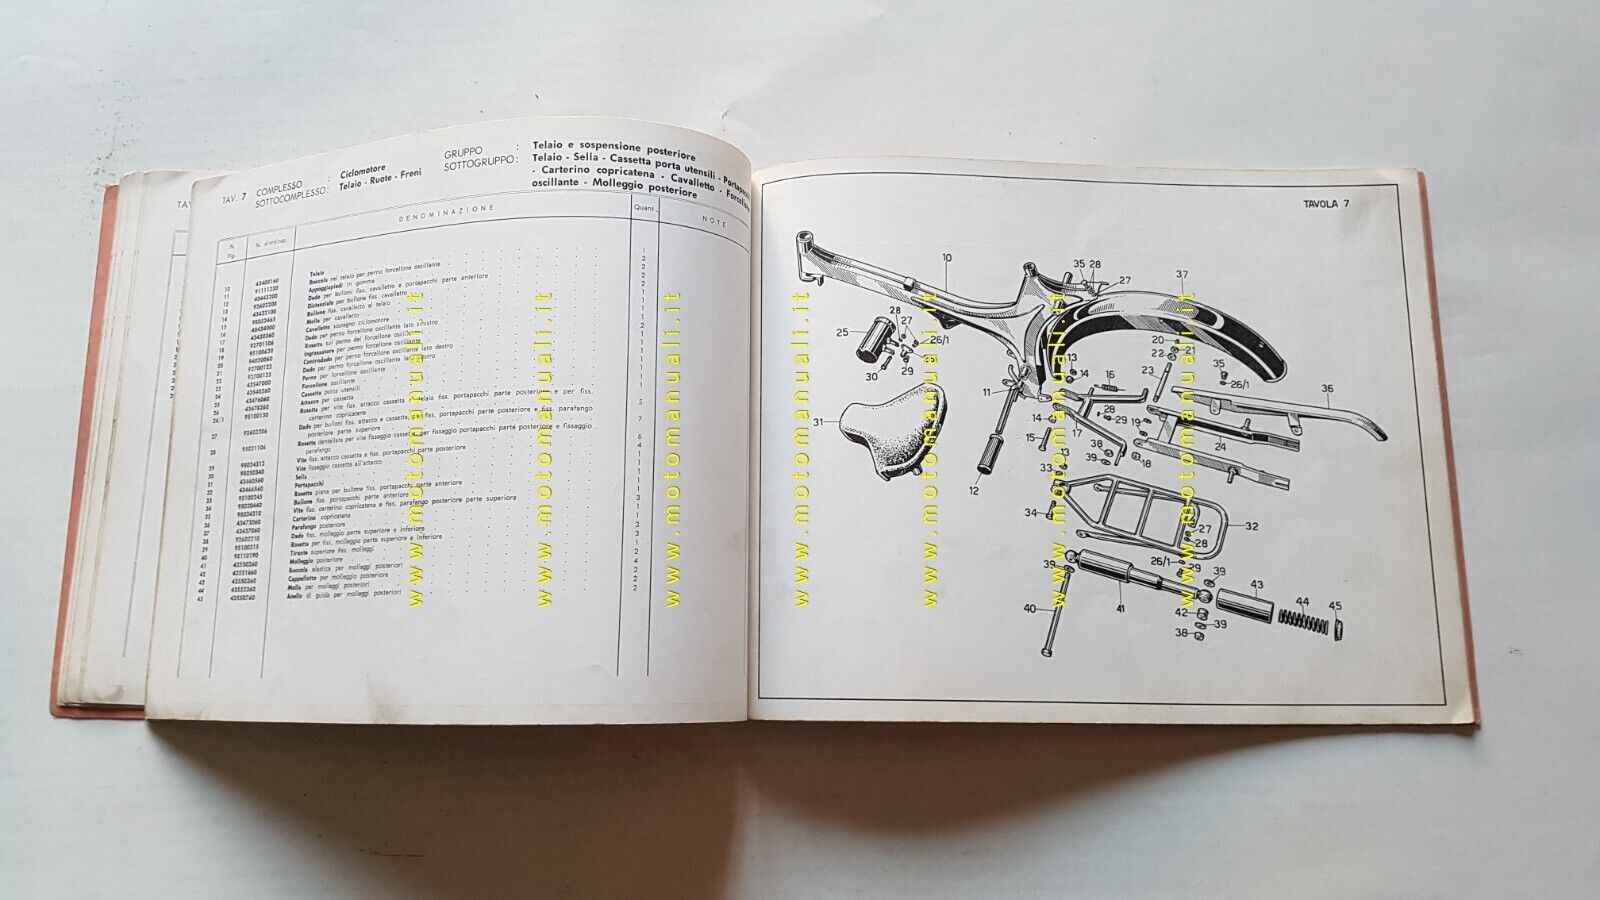 TAV. 7
COMPLESSO : Ciclomotore
SOTTOCOMPLESSO: Telaio - Ruote - Freni
GRUPPO : Telaio e sospensione posteriore
SOTTOGRUPPO: Telaio - Sella - Cassetta porta utensili - Portapacchi
- Carterino copricatena - Cavalletto - Forcellone
oscillante - Molleggio posteriore
N. Fig.
N. d'ordinaz.
DENOMINAZIONE
Quant.
NOTE
10 43400160 Telaio
11 91111230 Boccola nel telaio per perno forcellone oscillante
12 40443200 Appoggiapiedi in gomma
13 92602208 Dado per bulloni fiss. cavalletto e portapacchi parte anteriore
14 Distanziale per bullone fiss. cavalletto
15 Bullone fiss. cavalletto al telaio
16 40434000 Molla per cavalletto
17 Cavalletto sostegno ciclomotore
18 92701106 Dado per perno forcellone oscillante lato sinistro
19 95100620 Rosetta sul perno del forcellone oscillante
20 Ingrassatore per perno forcellone oscillante
21 92700122 Controdado per perno forcellone oscillante lato destro
22 92700125 Dado per perno forcellone oscillante lato destro
23 43547000 Perno per forcellone oscillante
24 Forcellone oscillante
25 43476060 Cassetta porta utensili
26 Attacco per cassetta
26/1 95100130 Rosetta per vite fiss. attacco cassetta al telaio fiss. portapacchi parte posteriore e per fiss.
carterino copricatena 5
27 92602206 Dado per bulloni fiss. attacco e cassetta, fiss. portapacchi parte posteriore e fiss. parafango
posteriore parte superiore 7
28 95021106 Rosetta dentellata per vite fissaggio cassetta per fissaggio portapacchi parte posteriore e fissaggio
parafango 6
29 98024312 Vite fiss. attacco cassetta e fiss. portapacchi parte posteriore 4
30 98050340 Vite fissaggio cassetta all'attacco
31 43460560 Sella
32 43466560 Portapacchi
33 95100245 Rosetta piana per bullone fiss. portapacchi parte anteriore
34 98020440 Bullone fiss. portapacchi parte anteriore
35 98024310 Vite fiss. carterino copricatena e fiss. parafango posteriore parte superiore
36 43473060 Carterino copricatena
37 43437060 Parafango posteriore
38 92602210 Dado fiss. molleggio parte superiore e inferiore
39 95100315 Rosetta per fiss. molleggio parte superiore e inferiore
40 98110190 Tirante superiore fiss. molleggi
41 43550260 Molleggio posteriore
42 43551660 Boccola elastica per molleggi posteriori
43 43550360 Cappellotto per molleggio posteriore
44 43552360 Molla per molleggi posteriori
45 43550760 Anello di guida per molleggi posteriori
TAVOLA 7
10
35 28
27
37
25
28
27
26/1
29
30
20
21
22
23
35
26/1
36
13
14
16
11
31
14
15
17
28
29
19
24
38
39
18
13
33
12
34
32
27
28
26/1
29
39
39
43
44
45
40
41
42
39
38
www.motomanuali.it
www.motomanuali.it
www.motomanuali.it
www.motomanuali.it
www.motomanuali.it
www.motomanuali.it
www.motomanuali.it